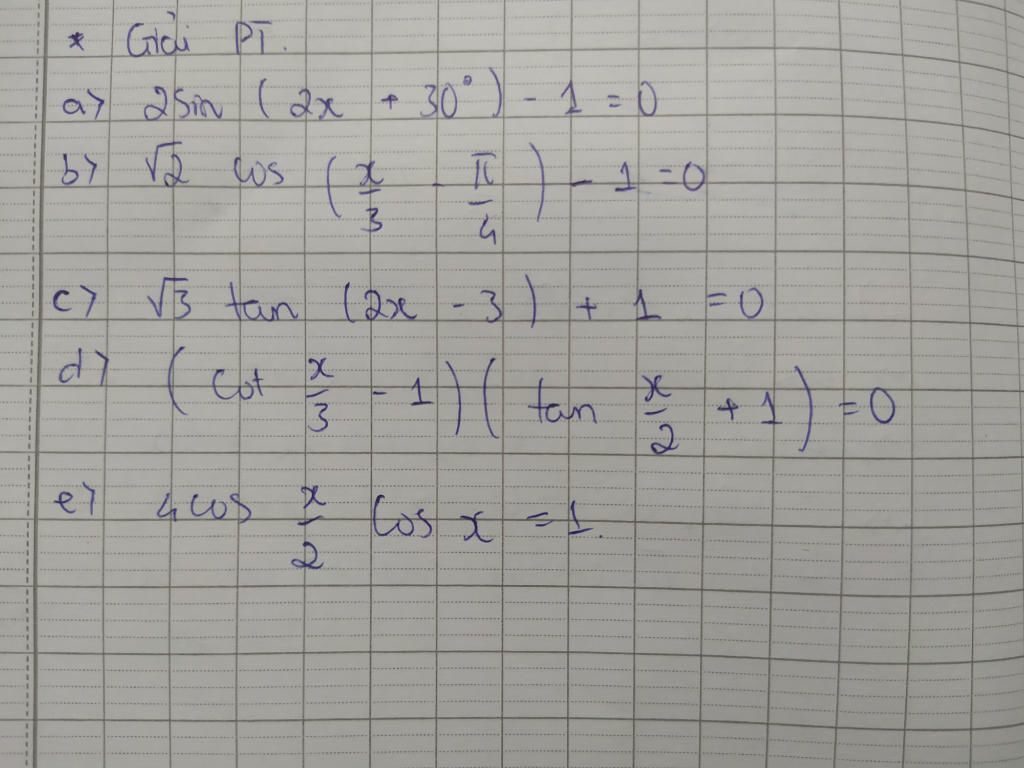 * Giải PT.
a> 2sin (2x + 30°) - 1 = 0
b> √2 cos (x/3 - π/4) - 1 = 0
c> √3 tan (2x - 3) + 1 = 0
d> (cot x/3 - 1)(tan x/2 + 1) = 0
e> 4cos x/2 cos x = 1.